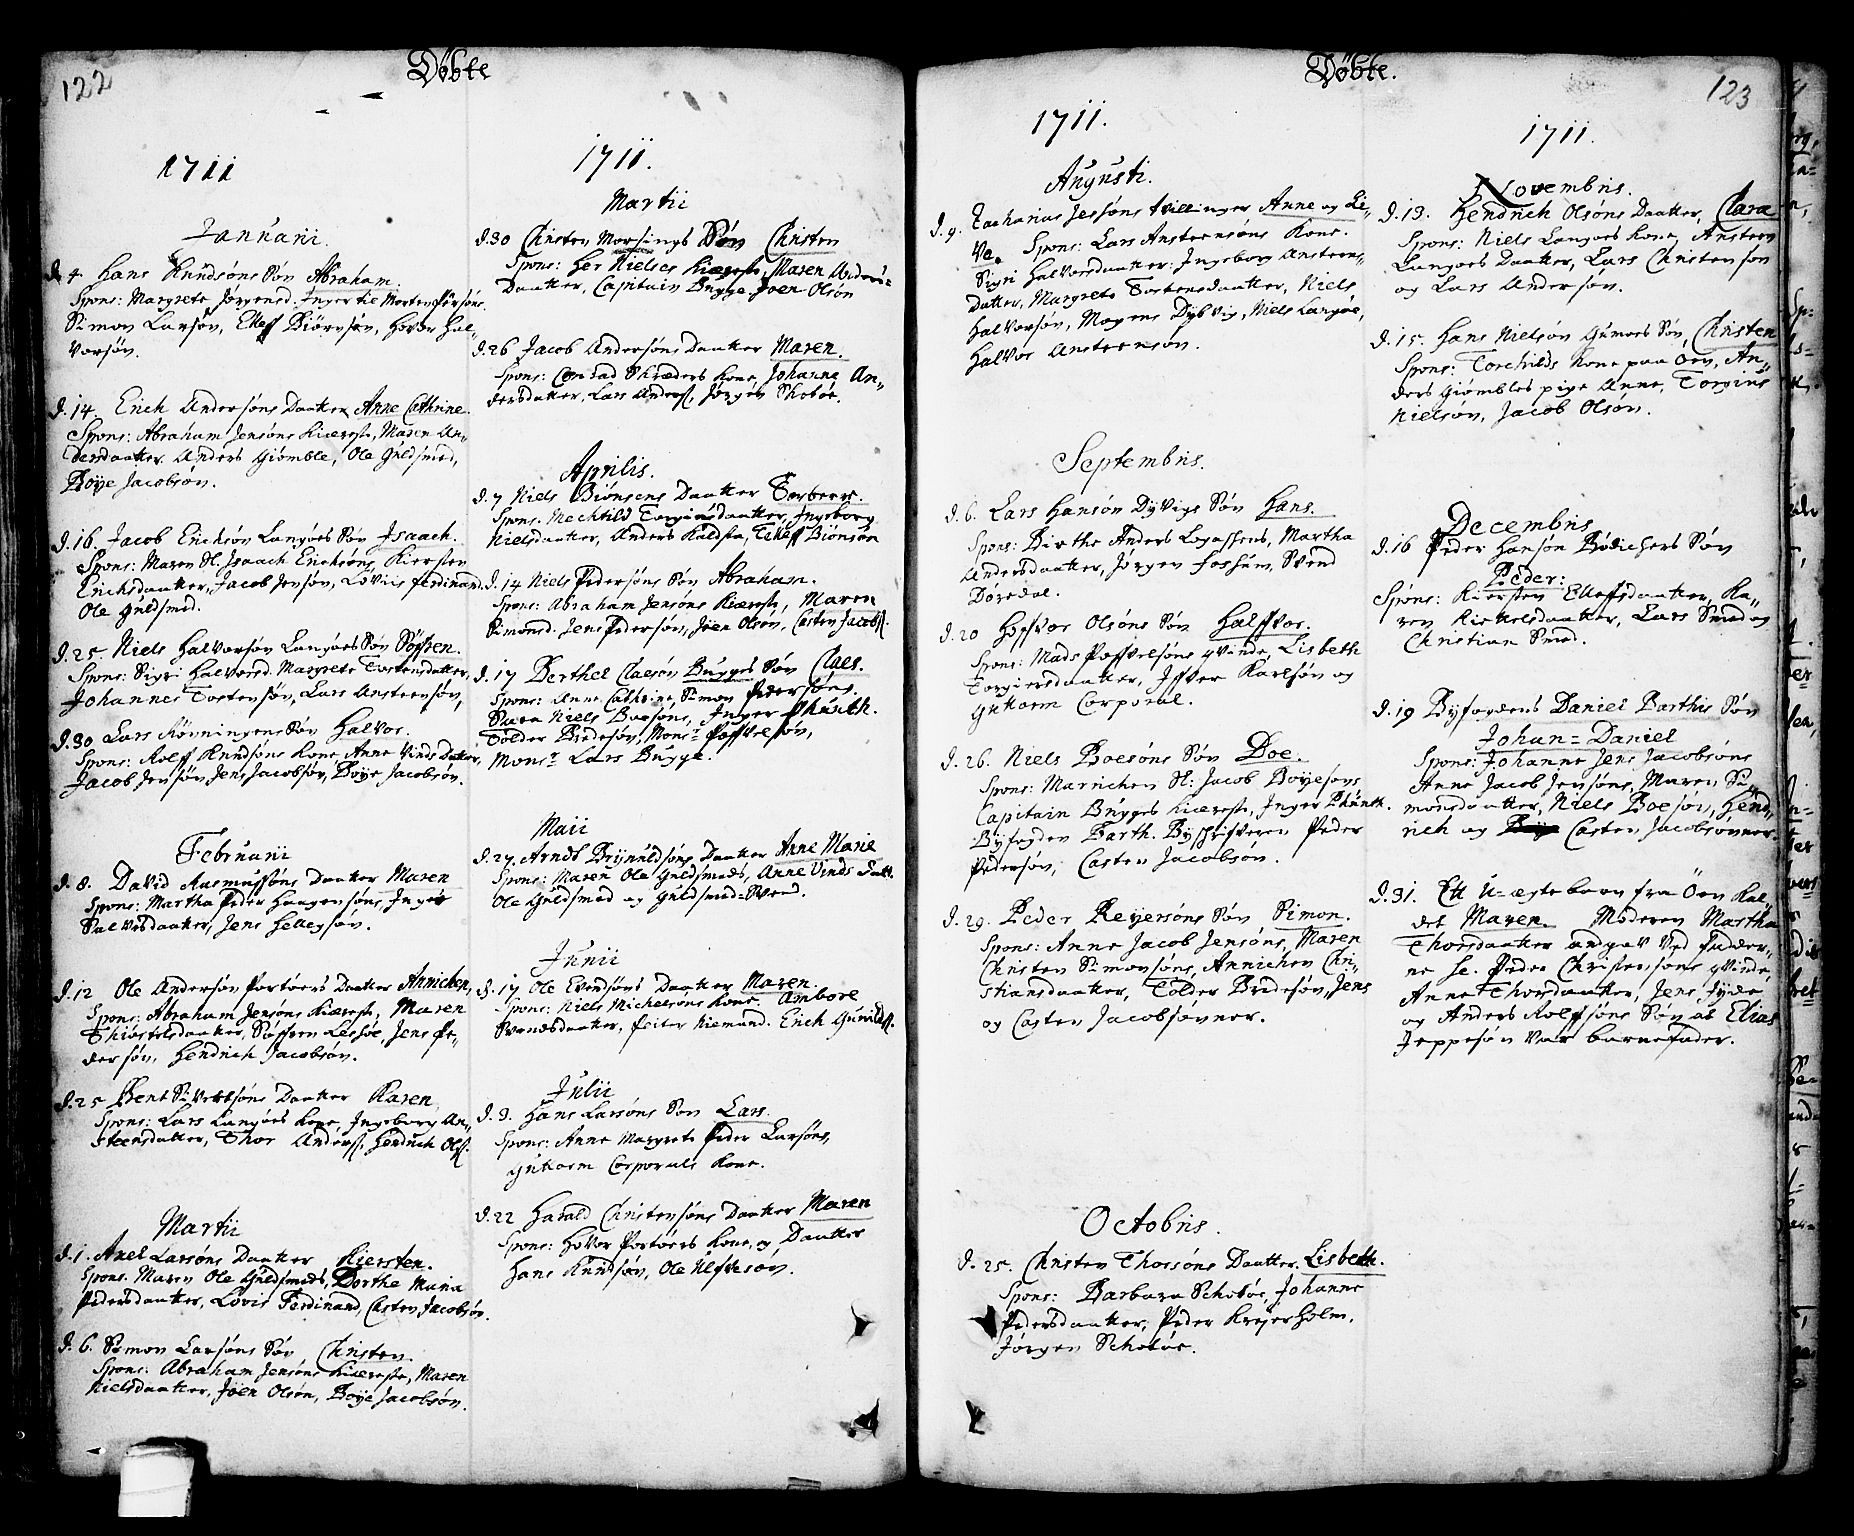 122
Døbte
1711
Januarii.
d. 4 Hans Knudsøns Søn Abraham.
Spons: Margrete Jørgensd. Inger til Morten
Simon Larsøn, Ellef Biørnsøn, Hover Hal-
vorsøn.
d. 14. Erich Andersøns Daatter Anne Cathrine.
Spons: Abraham Jensøns Kiæreste, Maren An-
dersdaatter. Anders Giømble, Ole Guldsmed,
Boye Jacobsøn.
d. 16. Jacob Erichsøn Langøes Søn Isaach.
Spons: Maren Sl. Isaach Erichsøns, Kiersten
Erichsdaatter, Jacob Jensøn, Lovis Ferdinand,
Ole Guldsmed.
d. 25. Niels Halvorsøn Langøes Søn Søffren.
Spons: Sigri Halvorsd. Margrete Tostensdatter,
Johannes Tostensøn, Lars Ansteensøn,
d. 30 Lars Rønningens Søn Halvor.
Spons: Rolff Knudsøns Kone, Anne Vinds Datter,
Jacob Jensøn, Jens Jacobsøn, Boye Jacobsøn.
Februarii
d. 8. David Rasmussøns Daatter Maren
Spons: Martha Peder Haagensøns, Inger
Salvesdaatter, Jens Hellegsøn.
d. 12 Ole Andersøn Portøers Daatter Annichen,
Spons: Abraham Jensøns Kiæreste, Maren
Thiøstelsdaatter, Søffren Lessøe, Jens Pe-
dersøn, Hendrich Jacobsøn.
d. 25 Bent Sivertsøns Daatter Karen
Spons: Lars Langøes Kone, Ingeborg An-
steensdatter, Thor Anderss. Hendrich Olss.
Martii
d. 1. Axel Larsøns Daatter Kiersten.
Spons. Maren Ole Guldsmeds, Dorthe Maria
Pedersdaatter, Lovis Ferdinand, Casten Jacobsøn.
d. 6. Simon Larsøns Søn Christen.
Spons: Abraham Jensøns Kiæreste, Maren
Nielsdaatter, Joen Olsøn, Boye Jacobsøn.
1711.
Martii
d. 30 Christen Morsings Søn Christen
Spons: Her Nielses Kiæreste, Maren Anders-
Daatter, Capitain Bugge, Joen Olsøn
d. 26 Jacob Andersøns Daatter Maren.
Spons: Conrad Skræders Kone, Johanne An-
dersdatter, Lars Anderss. Jørgen Skoboe.
Aprilis.
d. 7 Niels Biønsens Daatter
Spons. Mechtild Torgiusdaatter, Ingeborg
Nielsdaatter, Anders Kaldsta, Ellef Biønsøn
d. 14 Niels Pedersøns Søn Abraham.
Spons: Abraham Jensøns Kiæreste, Maren
Simonsd. Jens Pedersøn, Joen Olsøn, Casten Jacobss.
d. 17 Berthel Claesøn Bugges Søn Claes.
Spons: Anne Cathrine, Simon Pedersøns.
Sara Niels Boesøns, Inger Phanth.
Tolder Bredesøn, Monsr Poffvelsøn,
Monsr Lars Bugge.
Maii
d. 27. Arndt Brynnildsøns Daatter Anne Marie
Spons: Maren Ole Guldsmeds, Anne Vinds Datt.
Ole Guldsmed og Guldsmed-Svend.
Junii
d. 17 Ole Evensøns Daatter Maren.
Spons: Niels Michelsøns Kone. Ambore
Svendsdaatter, Peiter Niemand. Erich Gunildss.
Julii
d. 3. Hans Larsøns Søn Lars.
Spons: Anne Margrete Peder Larsøns,
Guttorm Corporals Kone.
d. 22 Harald Christensøns Daatter Maren
Spons: Hover Portøers Kone, og Daatter
Hans Knudsøn, Ole Ulfvesøn.
Døbte.
123
1711.
Augusti.
d. 9. Zacharias Jessøns tvillinger Anne og Li-
Ve. Spons: Lars Ansteensøns Kone.
Sigri Halvorsdaatter: Ingeborg Ansteens-
datter, Margrete Tostensdaatter, Niels
Halvorsøn, Mogens Dybvig, Niels Langøe,
Halvor Ansteensøn.
Septembris.
d. 6. Lars Hansøn Dyvigs Søn Hans.
Spons: Birthe Anders Logassens, Martha
Andersdaatter, Jørgen Fossum, Svend
Døvedal.
d. 20 Hoffvor Olsøns Søn Halfvor.
Spons: Mads Poffvelsøns qvinde, Lisbeth
Torgiersdaatter, Iffver Karlsøn og
Guttorm Corporal.
d. 26. Niels Boesøns Søn Boe.
Spons: Marichen Sl: Jacob Boyesøns
Capitain Bugges Kiæreste, Inger Phanth.
Byfogden Barth. Byschrifveren Peder
Pedersøn, Casten Jacobsøn.
d. 29. Peder Reyersøns Søn Simon.
Spons: Anne Jacob Jensøns, Maren
Christen Simonsøns, Annichen Chri-
stiansdaatter, Tolder Bredesøn, Jens
og Casten Jacobsønner.
Octobris.
d. 25. Christen Thorsøns Daatter. Lisbeth.
Spons: Barbara Schoboe, Johanne
Pedersdaatter, Peder Kreyerholm,
Jørgen Schoboe.
1711.
Novembris.
d. 13. Hendrich Olsøns Daatter, Clara
Spons: Niels Langøes Kone, Ansteen
Langøes Daatter, Lars Christensøn
og Lars Andersøn.
d. 15. Hans Nielsøn Gumøes Søn, Christen
Spons: Torchilds Kone paa Øen, An-
ders Giømbles pige Anne, Torgius
Nielsøn, Jacob Olsøn.
Decembris
d. 16 Peder Hansøn Bødichers Søn
Peder:
Spons: Kiersten Ellefsdaatter, Ka-
ren Kichelsdaatter, Lars Smed og
Christian Smed.
d. 19 Byfogdens Daniel Barthis Søn
Johan=Daniel
Spons: Johanne Jens Jacobsøns
Anne Jacob Jensøns, Maren Si-
monsdaatter, Niels Boesøn, Hend-
rich og Casten Jacobsønner.
d. 31. Ett U=ægte barn fra Øen Kal-
det Maren. Moderen Martha
Thorsdaatter angav ved fadder-
ne sc. Peder Christensøns qvinde,
Anne Thorsdaatter, Jens Jyde
og Anders Rolfsøns Søn at Elias
Jeppesøn var barnefader.